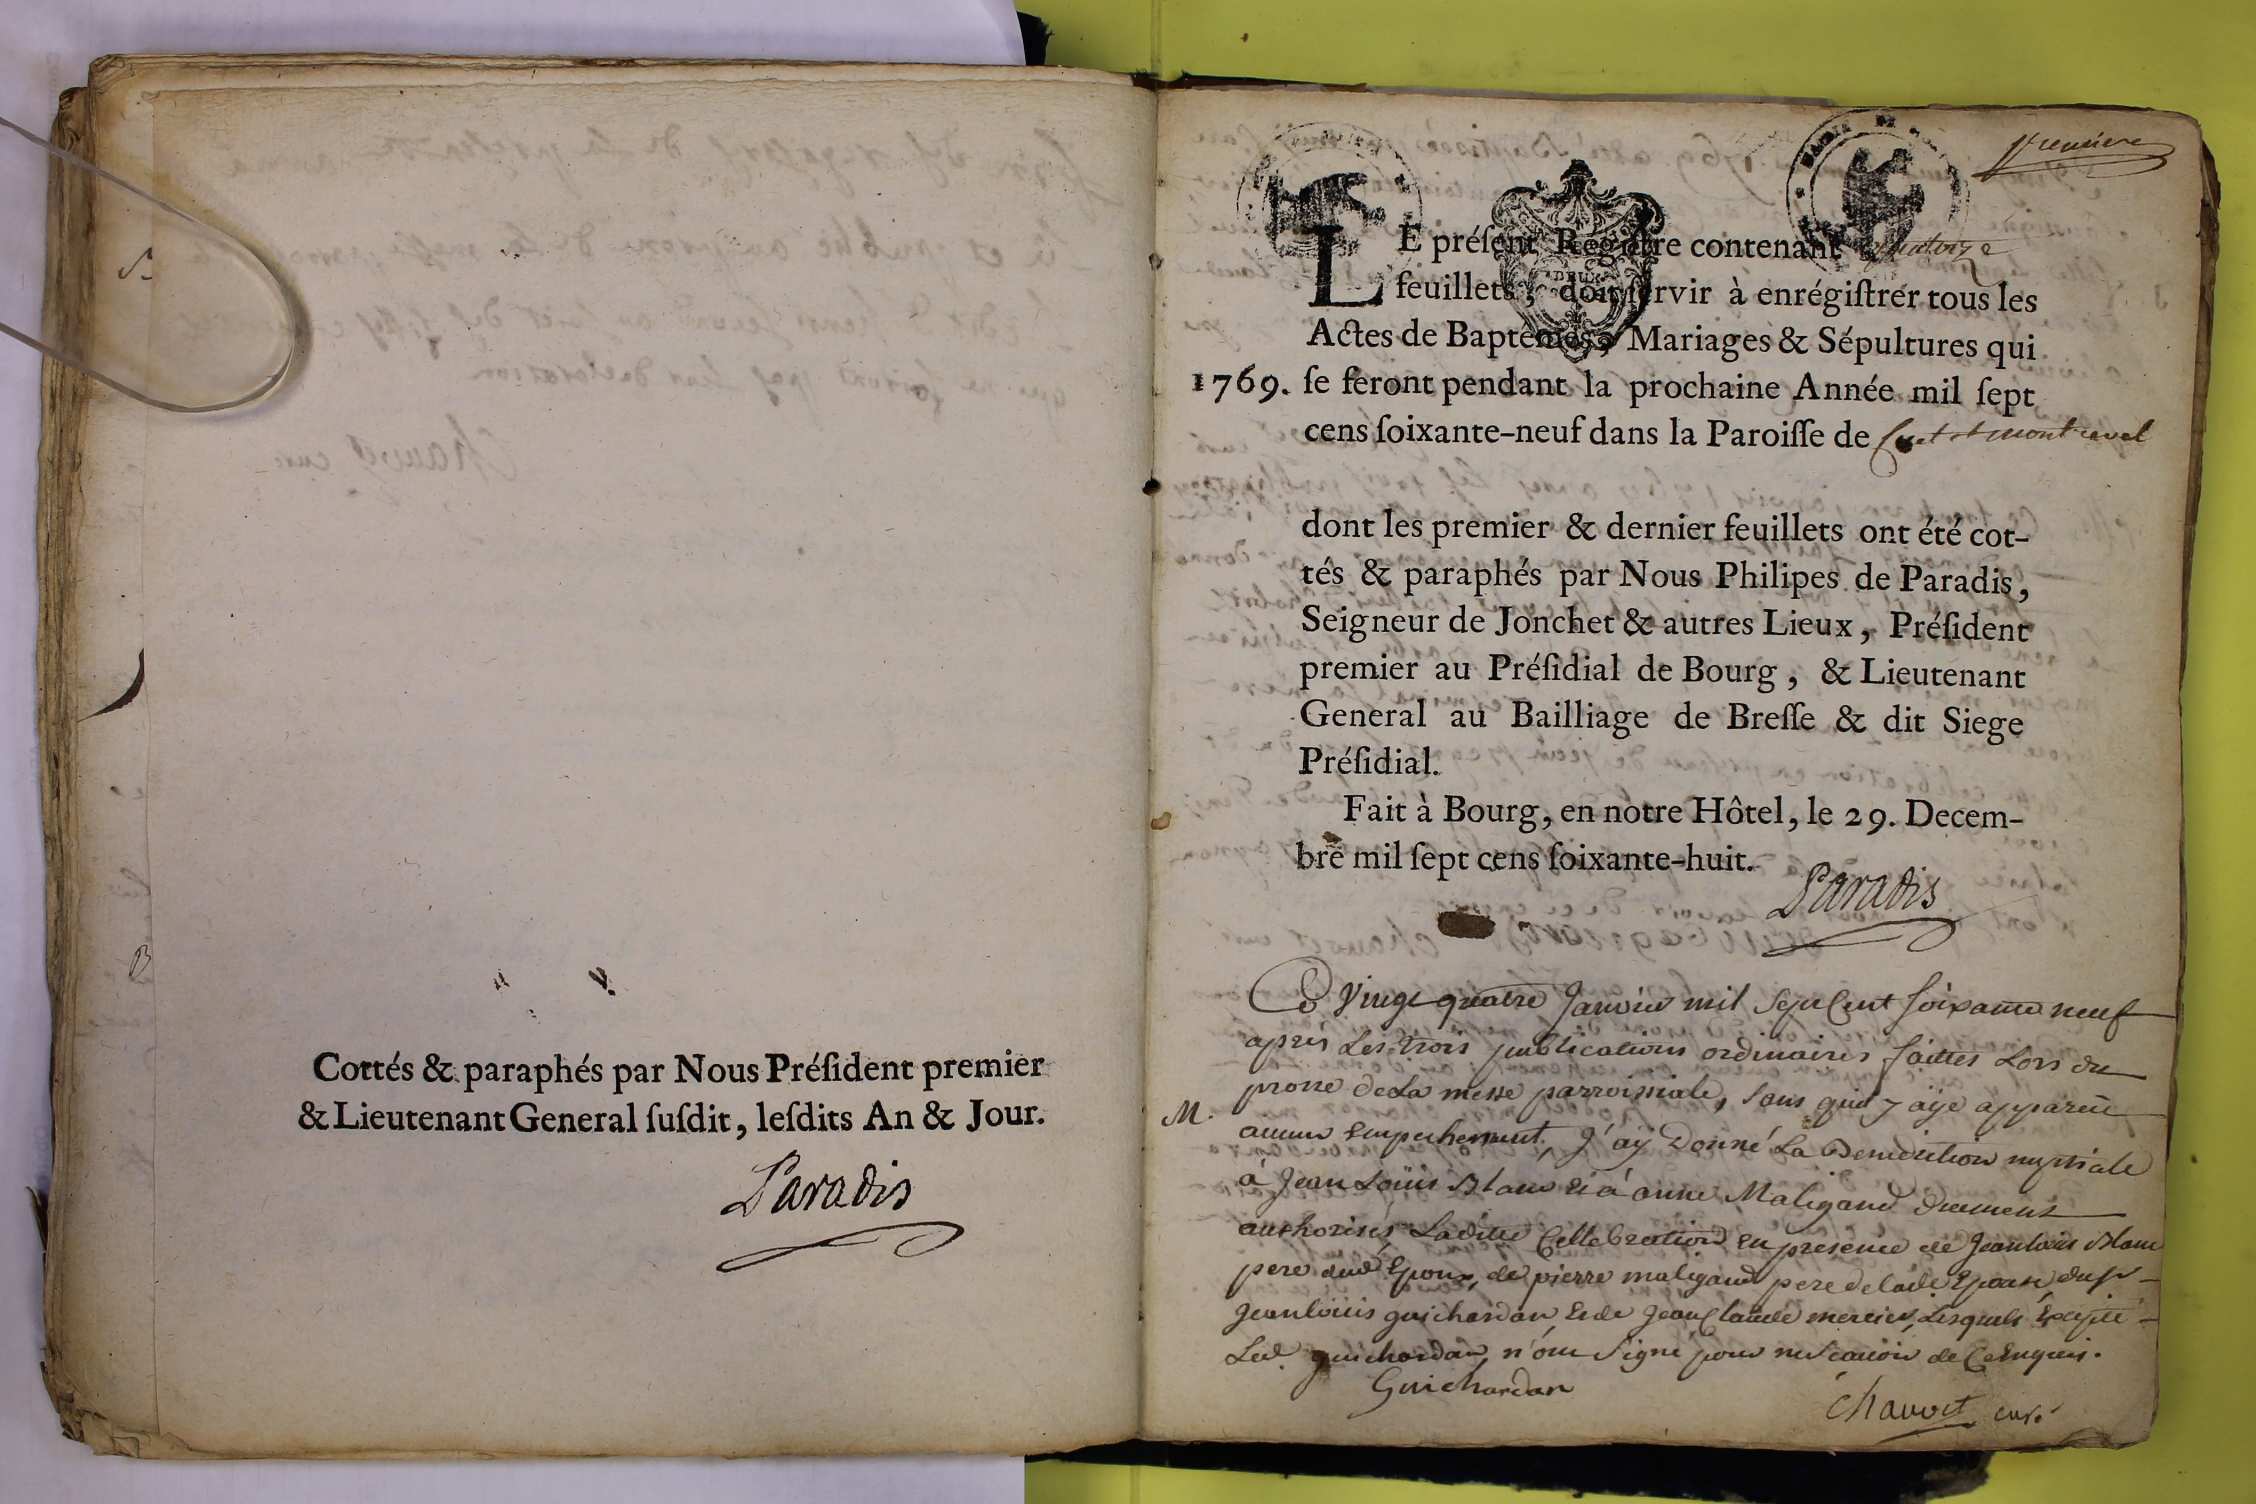 Cottés & paraphés par Nous Préſident premier
& Lieutenant General ſuſdit, leſdits An & Jour.
Paradis
premiere
LE préſent Regiſtre contenant quatorze
feuillets, doit ſervir à enrégiſtrer tous les
Actes de Baptêmes, Mariages & Sépultures qui
1769. ſe feront pendant la prochaine Année mil ſept
cens ſoixante-neuf dans la Paroiſſe de Cuet et montrevel
dont les premier & dernier feuillets ont été cot-
tés & paraphés par Nous Philipes de Paradis,
Seigneur de Jonchet & autres Lieux, Préſident
premier au Préſidial de Bourg, & Lieutenant
General au Bailliage de Breſſe & dit Siege
Préſidial.
Fait à Bourg, en notre Hôtel, le 29. Decem-
bre mil ſept cens ſoixante-huit.
Paradis
Ce vingt quatre Janvier mil sept Cent soixante neuf
après Les trois publications ordinaires faittes Lors du
prone de La messe parroissiale, sans qu'il y aye appareüe
M. aucun Empechement, J'ay Donné La Benediction nuptiale
à Jean Loüis Blanc et à anne Maligand düement
authorisés Laditte Cellebration en presence de Jean louis Blanc
pere dud Epoux, de pierre maligand pere de lad. Epouse, du sr
Jean loüis guichardan et de Jean Claude mercier, Lesquels Excepté
Led. guichardan n'ont signé pour ne scavoir de ce Enquis.
Guichardan
Chauvet curé